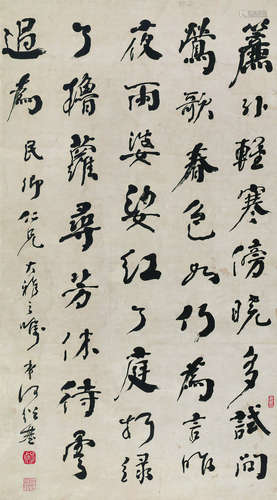 簾外輕寒傍曉多試問
鶯歌春色如何為言昨
夜雨婆娑紅了庭柯綠
了牆蘿尋芳休待雪
過為
民卿仁兄大雅之囑